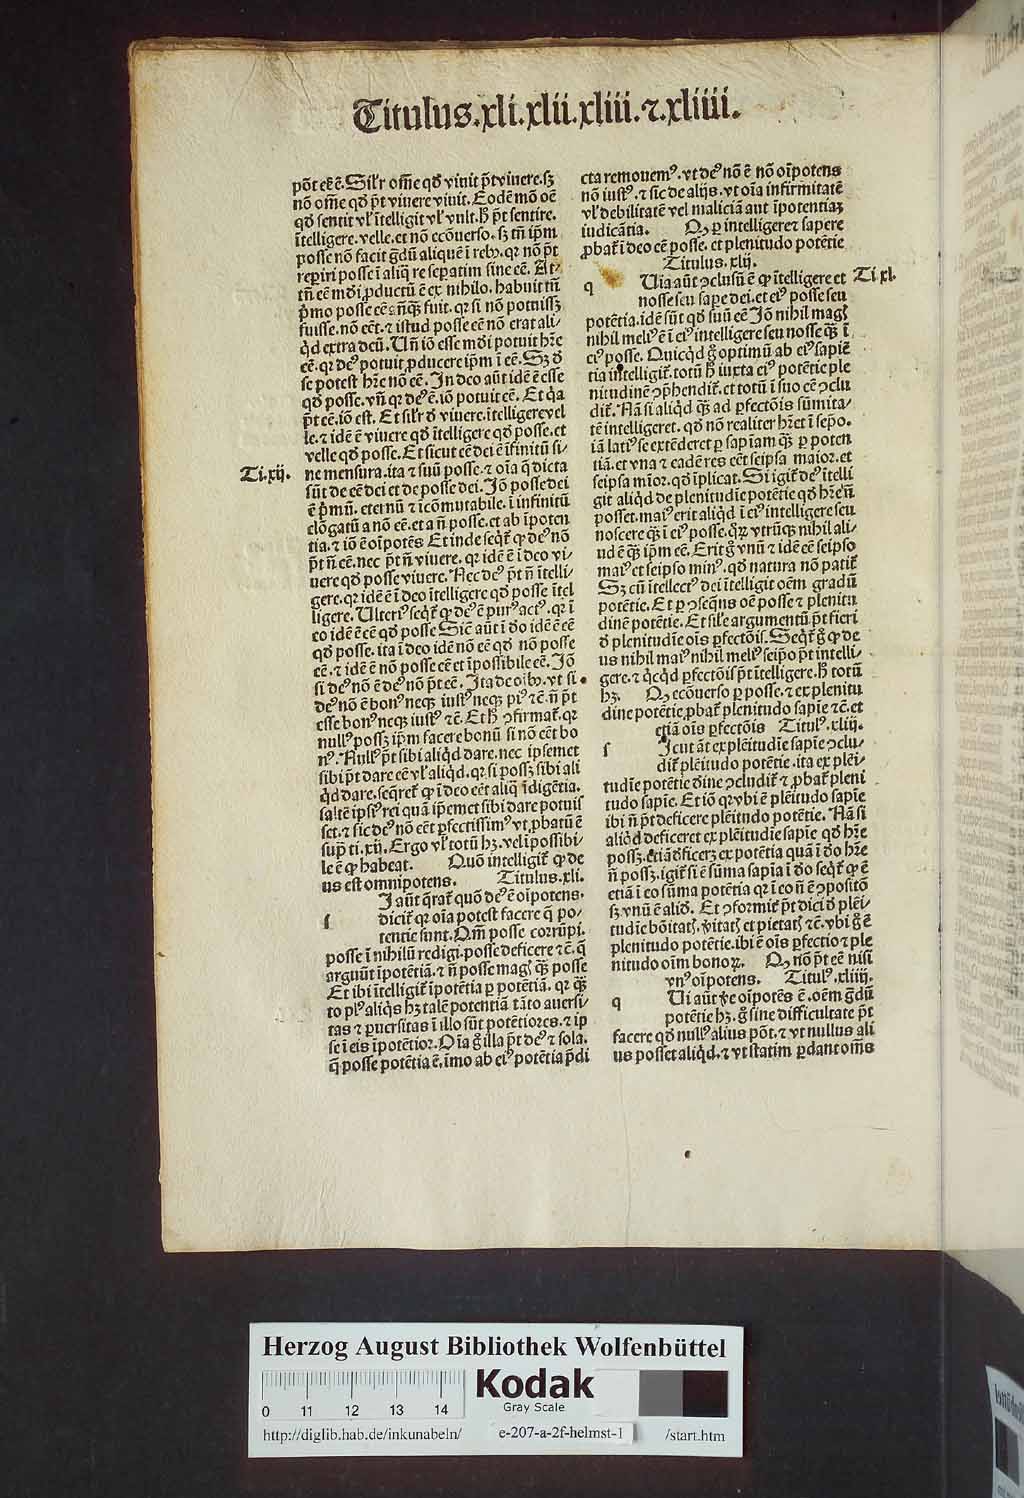 Titulus.xli.xlii.xliii.⁊.xliiii.
põt eē ē. Sil'r om̄e qđ viuit p̄t viuere. sꝫ
nō om̄e qđ p̄t viuere viuit. Eodē mō oē
qđ sentit vl' ītelligit vl' vult. h̄ p̄t sentire.
ītelligere. velle. et nō ecōuerso. sꝫ tn̄ ip̄m
posse nō facit g̃dū aliquē ī rebꝰ. qꝛ nō p̄t
reꝑiri posse ī aliq̄ re seꝑatim sine eē. At⸗
tn̄ eē mōi ꝓductū ē ex nihilo. habuit tn̄
fuisse. nō eēt. ⁊ istud posse eē nō erat ali⸗
qd extra deū. Un̄ iō esse mōi potuit hr̄e
eē. qꝛ deꝰ potuit ꝓducere ip̄m ī eē. Sꝫ đ
se potest hr̄e nō eē. In deo aūt idē ē esse
qđ posse. vn̄ qꝛ deꝰ ē. iō potuit eē. Et q̄a
p̄t eē. iō est. Et sil'r đ viuere. ītelligere vel
le. ⁊ idē ē viuere qđ ītelligere qđ posse. et
velle qđ posse. Et sicut eē dei ē īfinitū si⸗
Ti. xij.
ne mensura. ita ⁊ suū posse. ⁊ oīa q̄ dicta
sūt de eē dei et de posse dei. Iō posse dei
ē p̄mū. eternū ⁊ īcōmutabile. ī infinitū
elōgatū a nō eē. et a n̄ posse. et ab īpoten
tia. ⁊ iō ē oīpotēs Et inde seqt̄ ꝙ deꝰ nō
p̄t n̄ eē. nec p̄t n̄ viuere. qꝛ idē ē ī deo vi⸗
uere qđ posse viuere. Nec deꝰ p̄t n̄ ītelli⸗
gere. qꝛ idē ē ī deo ītelligere qđ posse ītel
ligere. Ulteriꝰ seqt̄ ꝙ deꝰ ē purꝰ actꝰ. qꝛ ī
eo idē ē eē qđ posse Sic aūt ī do idē ē eē
qđ posse. ita ī deo idē nō eē qđ nō posse
eē. ⁊ idē ē nō posse eē et īpossibile eē. Iō
si deꝰ nō ē deꝰ nō p̄t eē. Ita de oībꝰ. vt si
deꝰ nō ē bonꝰ neqꝫ iustꝰ neqꝫ piꝰ ⁊c̄. n̄ p̄t
esse bonꝰ neqꝫ iustꝰ ⁊c̄. Et h̄ ꝯfirmat̄. qꝛ
nullꝰ possꝫ ip̄m facere bonū si nō eēt bo
nꝰ. Nullꝰ p̄t sibi aliqd dare. nec ipsemet
sibi p̄t dare eē vl' aliqd. qꝛ si possꝫ sibi ali
qd dare. seqret̄ ꝙ ī deo eēt aliq̄ īdigētia.
saltē ipsiꝰ rei quā ip̄emet sibi dare potuis
set. ⁊ sic deꝰ nō eēt ꝑfectissimꝰ vt ꝓbatū ē
sup̄ ti. xij. Ergo vl' totū hꝫ. vel īpossibi⸗
le ē ꝙ habeat. Quō intelligit̄ ꝙ de
us est omnipotens. Titulus. xli.
s
I aūt q̄rat̄ quō deꝰ ē oīpotens.
dicit̄ qꝛ oīa potest facere q̄ po⸗
tentie sunt. Qm̄ posse corrūpi.
posse ī nihilū redigi. posse deficere ⁊c̄. q̄
arguūt īpotētiā. ⁊ n̄ posse mag̃ q̃ꝫ posse
Et ibi ītelligit̄ īpotētia ꝑ potētiā. qꝛ q̃ꝫ
to plꝰ aliqs hꝫ talē potentiā tāto auersi⸗
tas ⁊ ꝑuersitas ī illo sūt potētiores. ⁊ ip
se ī eis īpotētior. Oīa g̃ illa p̄t deꝰ ⁊ sola.
q̄ posse potētia ē. īmo ab eiꝰ potētia p̄di
cta remouemꝰ. vt deꝰ nō ē nō oīpotens
nō iustꝰ. ⁊ sic de alijs. vt oīa infirmitatē
vl' debilitatē vel maliciā aut īpotentiaꝫ
iudicātia. Qꝫ ꝑ intelligere ⁊ sapere
ꝓbat̄ ī deo eē posse. et plenitudo potētie
Titulus. xlij.
q
Uia aūt ꝯclusū ē ꝙ ītelligere et
Ti xl.
nosse seu sapere dei. et eiꝰ posse seu
potētia. idē sūt qđ suū eē Iō nihil mag̃
nihil meliꝰ ē ī eiꝰ intelligere seu nosse q̃ꝫ ī
eiꝰ posse. Quicqd g̃ optimū ab eiꝰ sapiē
tia intelligit̄. totū h̄ iuxta eiꝰ potētie ple
nitudinē ꝯp̄hendit̄. et totū ī suo eē ꝯclu
dit̄. Nā si aliqd q̃ꝫ ad ꝑfectōis sūmita⸗
tē intelligeret. qđ nō realiter hr̄et ī seip̄o.
iā latiꝰ se extēderet ꝑ sapīam q̃ꝫ ꝑ poten
tiā. et vna ⁊ eadē res eēt seipsa maior. et
seipsa mīor. qđ īplicat. Si igit̄ deꝰ ītelli
git aliqd de plenitudīe potētie qđ hr̄e n̄
posset. maiꝰ erit aliqd ī eiꝰ intelligere seu
noscere q̃ꝫ ī eiꝰ posse. quoꝝ vtrūqꝫ nihil ali⸗
ud ē q̃ꝫ ip̄m eē. Erit g̃ vnū ⁊ idē eē seipso
maiꝰ et seipso minꝰ. qđ natura nō patit̄
Sꝫ cū ītellectꝰ dei ītelligit oēm gradū
potētie. Et ꝑ ꝯseq̄ns oē posse ⁊ plenitu
dinē potētie. Et sil'e argumentū p̄t fieri
đ plenitudīe oīs ꝑfectōis. Seqt̄ g̃ ꝙ de
us nihil maiꝰ nihil meliꝰ seip̄o p̄t intelli⸗
gere. ⁊ qcqd ꝑfectōis p̄t ītelligere. h̄ totū
hꝫ. Qꝫ ecōuerso ꝑ posse. ⁊ ex plenitu
dine potētie. ꝓbat̄ plenitudo sapīe ⁊c̄. et
etiā oīs ꝑfectōis Titulꝰ. xliij.
s
Icut āt ex plēitudīe sapīe ꝯclu⸗
dit̄ plēitudo potētie. ita ex plēi⸗
tudīe potētie đine ꝯcludit̄ ⁊ ꝓbat̄ pleni
tudo sapīe. Et iō qꝛ vbi ē plēitudo sapīe
ibi n̄ p̄t deficere plēitudo potētie. Nā si
aliqd deficeret ex plēitudīe sapīe qđ hr̄e
possꝫ. etiā đficerꝫ ex potētia quā ī đo hr̄e
n̄ possꝫ. igit̄ si ē sūma sapīa ī đo seqt̄ ꝙ ē
etiā ī eo sūma potētia qꝛ ī eo n̄ ē ꝯpositō
sꝫ vnū ē aliđ. Et ꝯformit̄ p̄t dici đ plēi⸗
tudīe bōitat̄. v̄itat̄ et pietat̄ ⁊c̄. vbi g̃ ē
plenitudo potētie. ibi ē oīs ꝑfectio ⁊ ple
nitudo oīm bonoꝝ. Qꝫ nō p̄t eē nisi
vnꝰ oīpotens. Titulꝰ. xliiij.
q
Ui aūt v̄e oīpotēs ē. oēm g̃dū
potētie hꝫ. g̃ sine difficultate p̄t
facere qđ nullꝰ alius põt. ⁊ vt nullus ali
us posset aliqd. ⁊ vt statim ꝑdant om̄s
Herzog August Bibliothek Wolfenbüttel
0 11 12 13 14
Kodak
Gray Scale
http://diglib.hab.de/inkunabeln/ e-207-a-2f-helmst-1 /start.htm